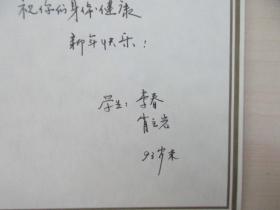 祝你们身体健康
新年快乐!
学生:李春
肖立岩
93岁末